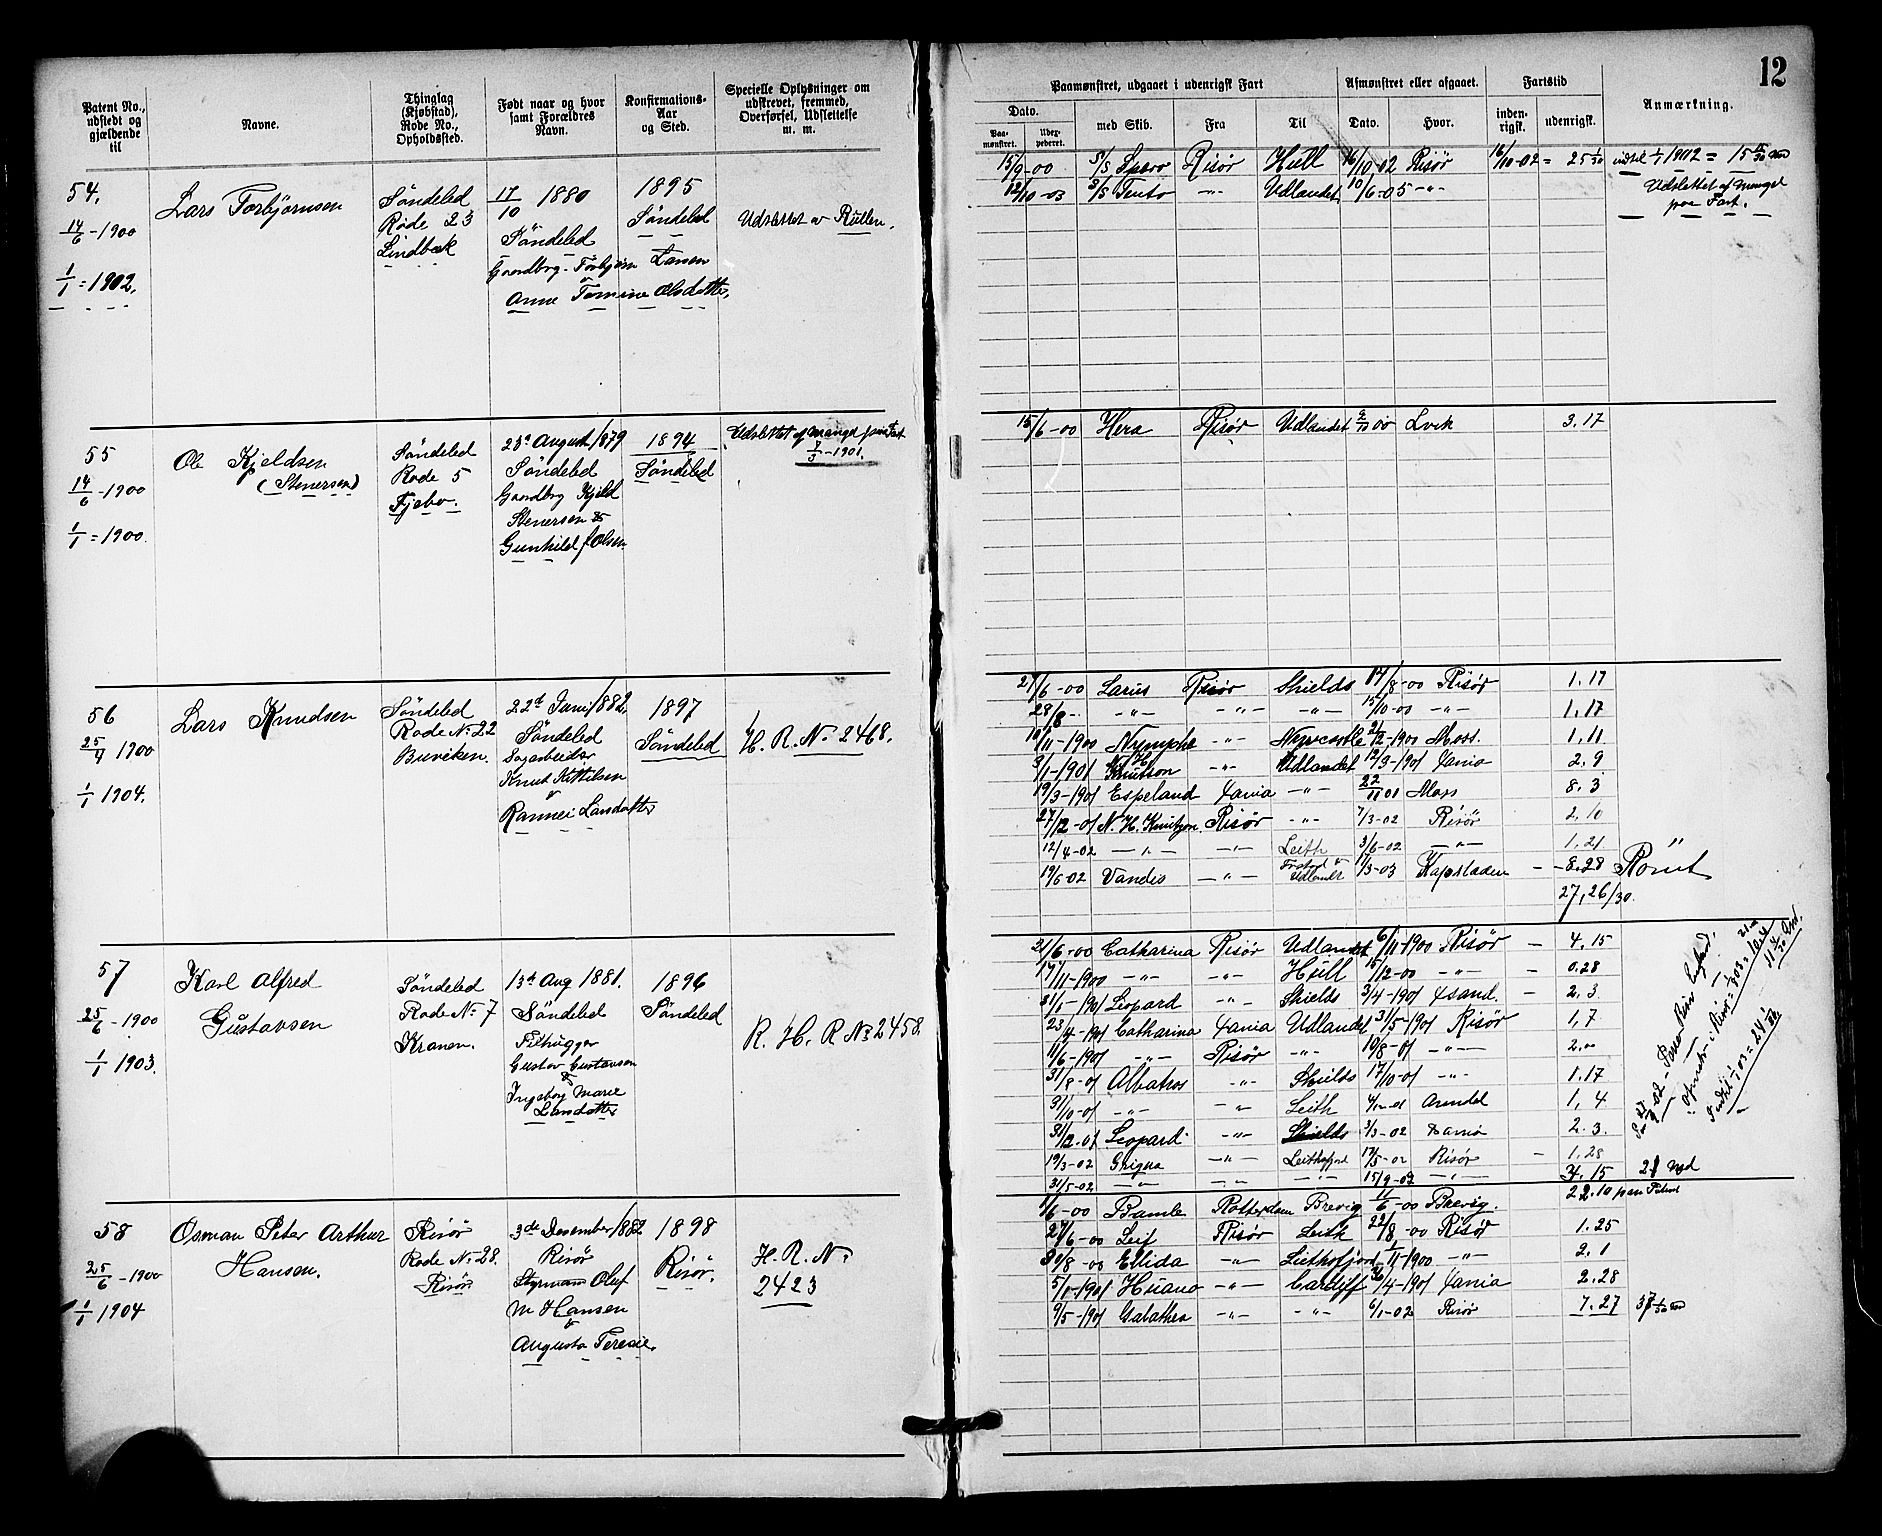 12
Patent No., udstedt og gjældende til
Navne.
Thinglag (Kjøbstad), Rode No., Opholdssted.
Født naar og hvor samt Forældres Navn.
Konfirmations-Aar og Sted.
Specielle Oplysninger om udskrevet, fremmed, Overførsel, Udslettelse m. m.
Paamønstret, udgaaet i udenrigsk Fart
Afmønstret eller afgaaet.
Fartstid
Anmærkning.
Dato.
Paamønstret.
med Skib.
Fra
Til
Dato.
Hvor.
indenrigsk.
udenrigsk.
54.
14/6 - 1900
1/1 = 1902.
Lars Torbjørnsen
Søndeled
Rode 23
Lindbæk
17/10 1880
Søndeled
Gaardbrg. Torbjørn Larsen
Anne Tomine Olsdatter,
1895
Søndeled
Udslettet av Rullen.
15/9-00 S/S Spero Risør Hull 16/10-02 Risør 16/10-02 = 25 1/30 indtil 1/1 1902 =
12/10-03 S/S -"- Udlandet 10/6-05 -"-
Udslettet af Mangel
paa Fart.
55
14/6 - 1900
1/1 = 1900.
Ole Kjeldsen
(Stenersen)
Søndeled
Rode 5
Fjebo.
23de August/1879
Søndeled
Gaardbrg Kjeld
Stenersen &
Gunhild Olsen
1894
Søndeled
Udslettet af mangel paa Fart
15/6-00 Hera Risør Udlandet Lvik 3.17
56
1900
1/1 1904.
Lars Knudsen
Søndeled
Rode No. 22
Buviken.
22d Juni/1882
Søndeled
Sagarbeider
Knut Kittelsen
&
Rannei Larsdatter
1897
Søndeled
H. R. No 2468.
27/6-00 Larus Risør Shields 14/8-00 Risør 1.17
28/8- -"- -"- -"- 15/10-00 -"- 1.17
10/11-1900 Nymphe -"- Newcastle 21/12-1900 Moss. 1.11
3/1-1901 N. H. Knutson -"- Udlandet 12/3-1901 Xania 2.9
19/3-1901 Espeland Xania -"- 22/11 01 Moss 8.3
27/12-01 N. H. Knutzon Risør -"- 7/3-02 Risør 2.10
12/4-02 -"- -"- Leith 3/6-02 -"- 1.21
19/6-02 Vandis -"- Udlandet 11/3-03 Kapstaden - 8.28 Rømt
27,26/30.
57
25/6 - 1900
1/1 1903.
Karl Alfred
Gustavsen
Søndeled
Rode No 7
Kranen.
13de Aug 1881.
Søndeled
Gustav Gustavsen
&
Ingeborg Marie
Larsdatter
1896
Søndeled
R. H. R No 2458
21/6-00 Catharina Risør Udlandet 6/11-1900 Risør - 4.15
17/11-1900 -"- -"- Hull 15/12-00 -"- - 0.28
31/1-1901 Leopard -"- Shields 3/4-1901 Xsand. - 2.3
23/4-1901 Catharina Xania Udlandet 31/5-1901 Risør 1.7
11/6-1901 -"- Risør -"- 10/8-01 -"- 2.00
31/8-01 Albatros -"- Shields 17/10-01 -"- 1.17
31/10-01 -"- -"- Leith Arendal 1.4
31/12-01 Leopard -"- Shields 3/3-02 Xania 2.3.
19/3-02 Grigna -"- Leithsfjord 17/5-02 Risør - 1.28
31/5-02 -"- -"- -"- 15/9-02 -"- 3.15
58
25/6 - 1900
1/1 1904
Osman Peter Arthur
Hansen.
Risør
Rode No. 28.
Risør
3de Desember/1882
Risør
Styrmann Oluf
M Hansen
&
Augusta Teresie.
1898
Risør.
H. R. No
2423
1/6-00 Bamle Rotterdam Brevig 11/6-00 Brevig. 22.10
27/6-00 Leif Risør Leith 22/8-00 Risør 1.25
30/8-00 Ellida -"- Leithsfjord 1/11-1900 -"- 2.1
5/1-1901 Huano -"- Cardiff 26/4-1901 Xania 2.28
9/5-1901 Galathea -"- -"- 6/1-02 Risør 7.27